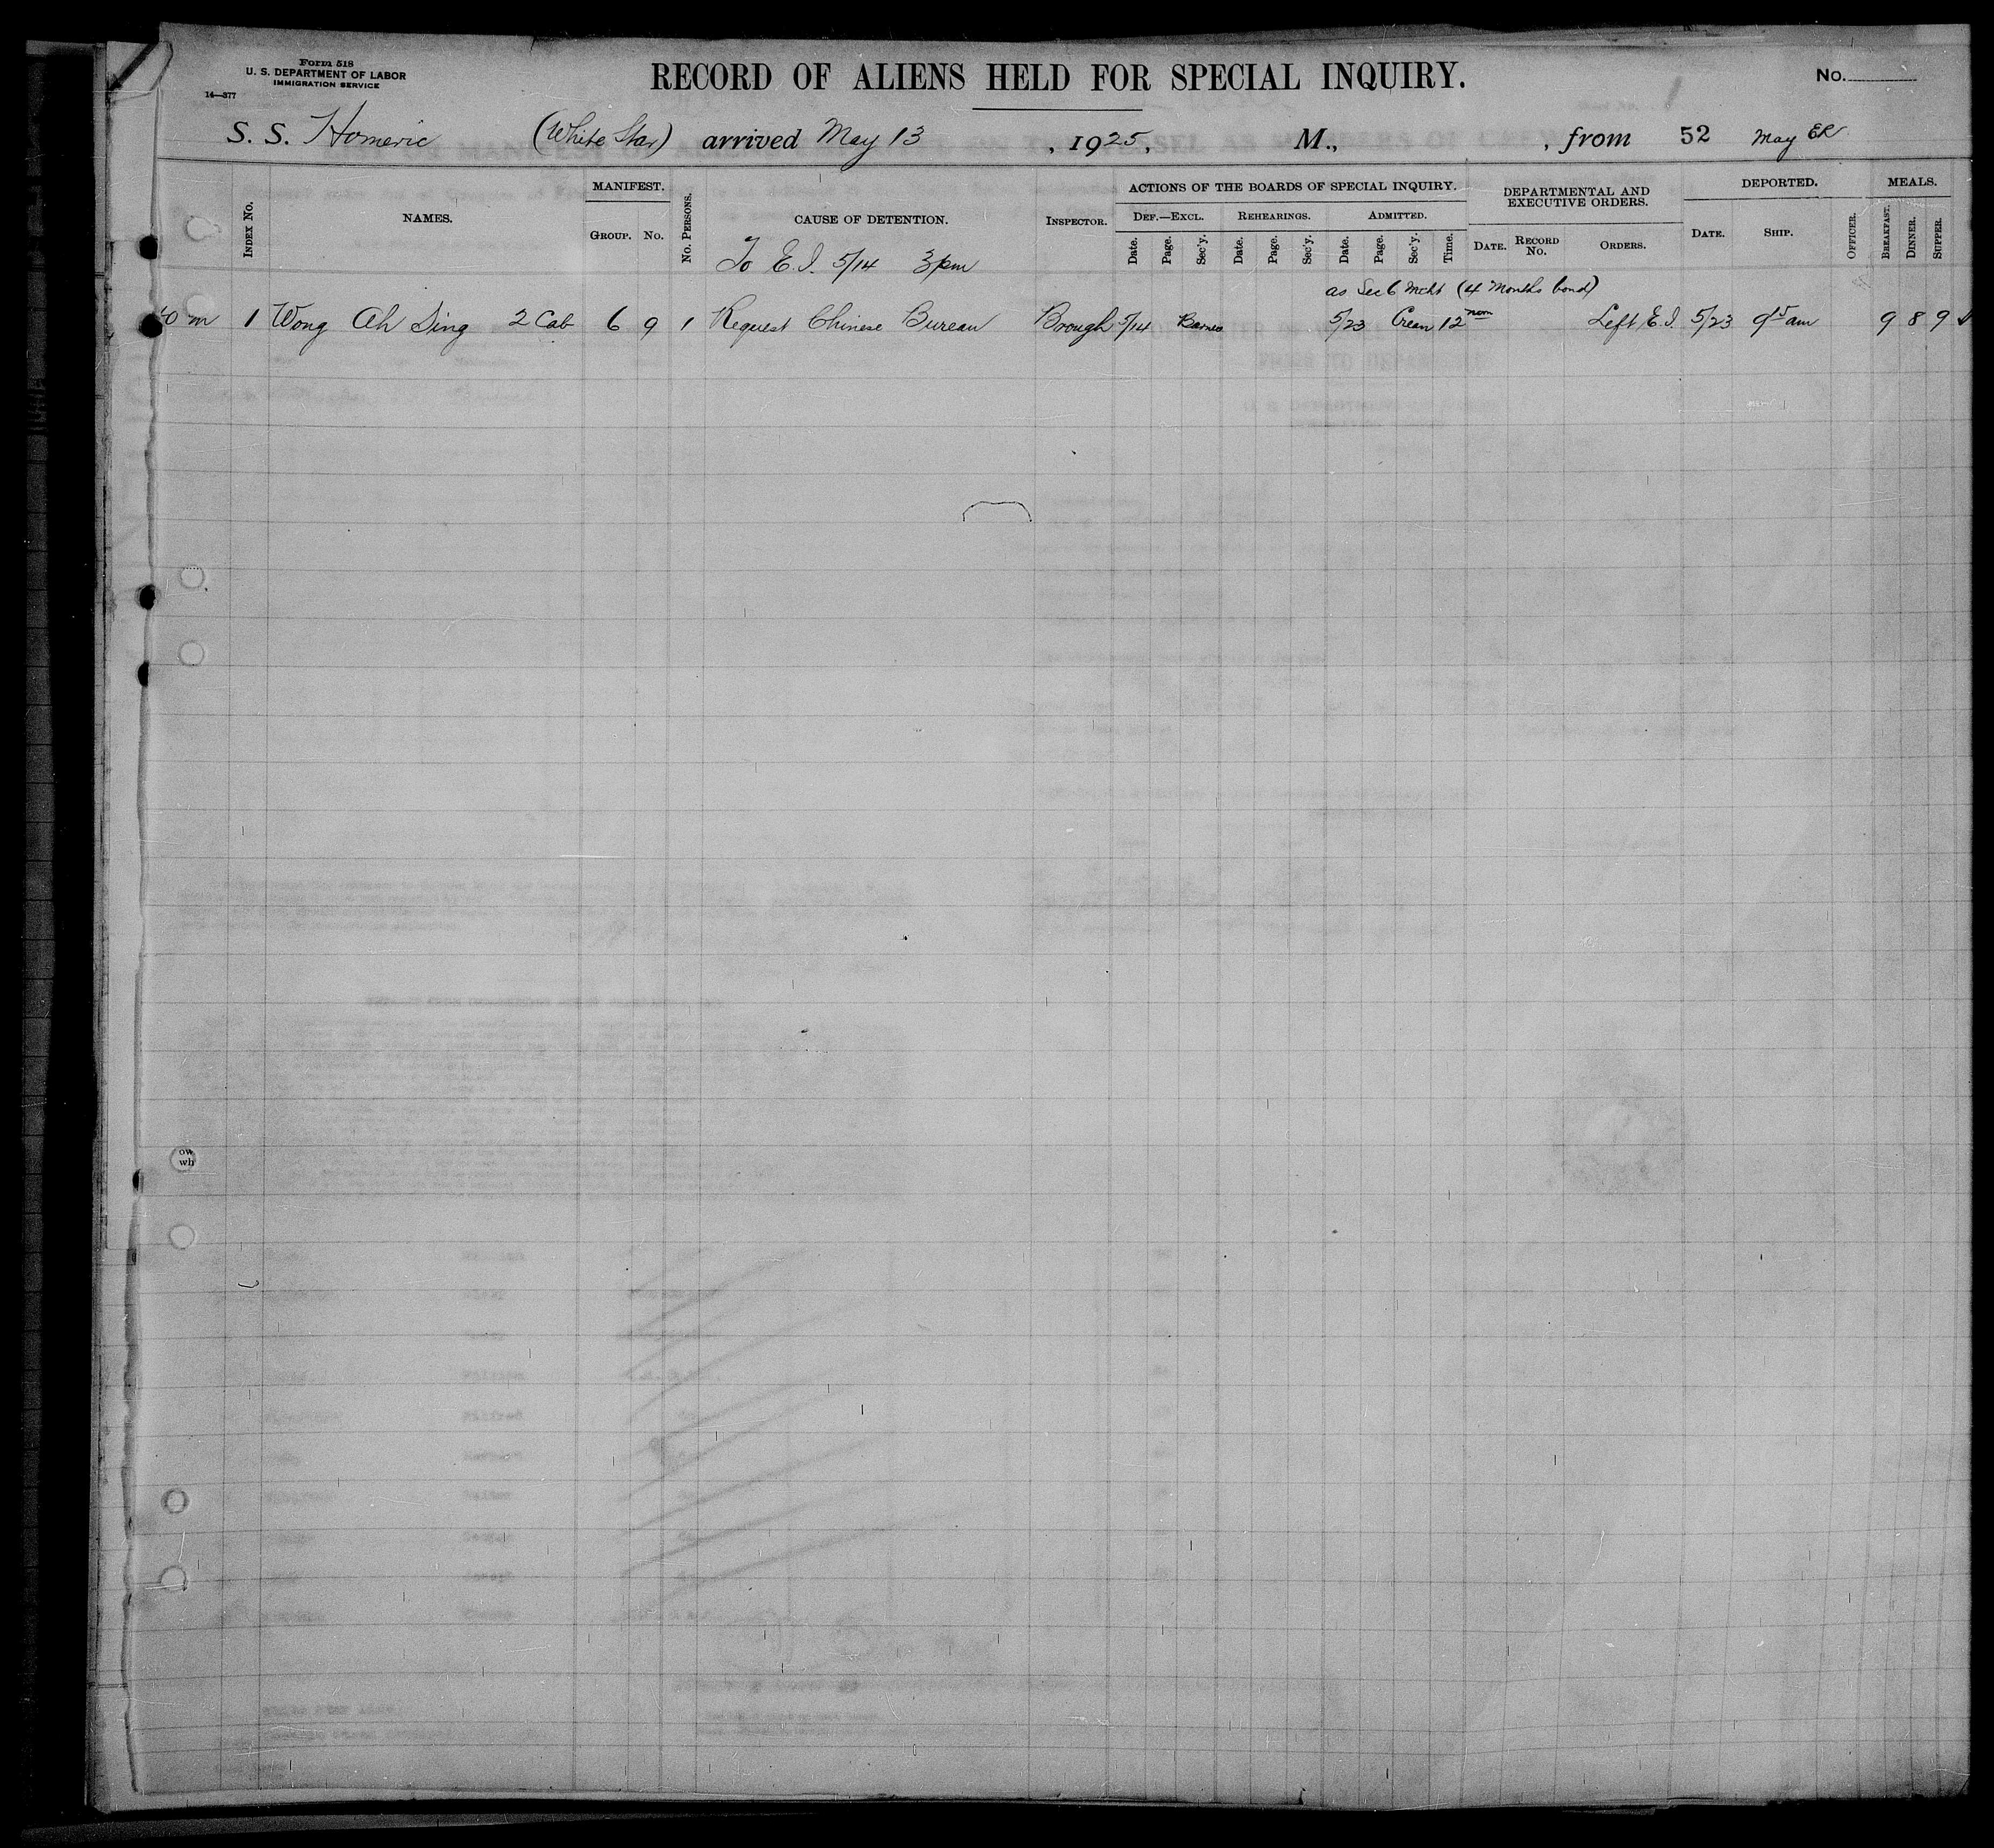 Form 518
U. S. DEPARTMENT OF LABOR
IMMIGRATION SERVICE
14—377
RECORD OF ALIENS HELD FOR SPECIAL INQUIRY.
No.
S. S. Homeric (White Star) arrived May 13, 1925, M., , from 52 May ER
INDEX No. NAMES. MANIFEST. GROUP. No. No. PERSONS. CAUSE OF DETENTION. INSPECTOR. ACTIONS OF THE BOARDS OF SPECIAL INQUIRY. DEPARTMENTAL AND EXECUTIVE ORDERS. DEPORTED. MEALS.
DEF.—EXCL. REHEARINGS. ADMITTED.
Date. Page. Sec'y. Date. Page. Sec'y. Date. Page. Sec'y. Time. DATE. RECORD No. ORDERS. DATE. SHIP. OFFICER. BREAKFAST. DINNER. SUPPER.
To E.I. 5/14 3pm
as Sec 6 Mcht (4 Months bond)
40 m 1 Wong Ah Sing 2 Cab 6 9 1 Request Chinese Bureau Brough 5/14 Barnes 5/23 Crean 12 noon Left E.I. 5/23 9 15 am 9 8 9
ow
wh